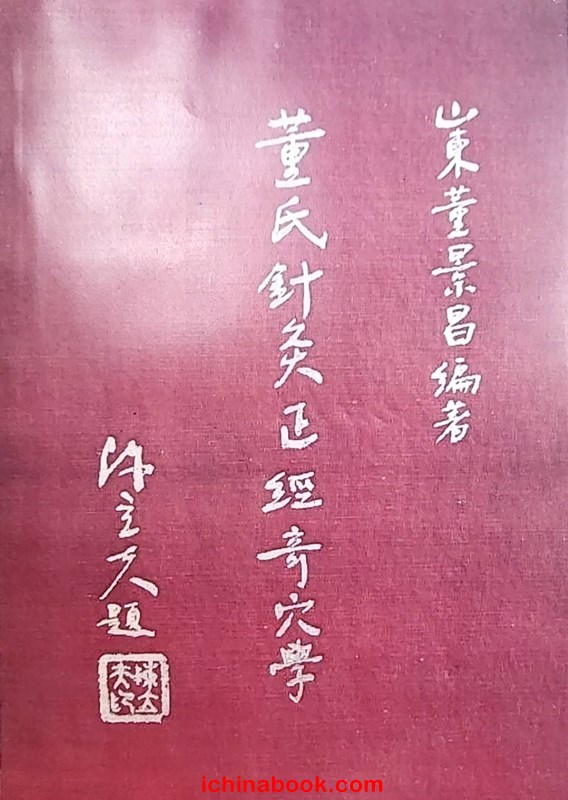 山東董景昌編著
董氏針灸正經奇穴學
陳立夫題
ichinabook.com